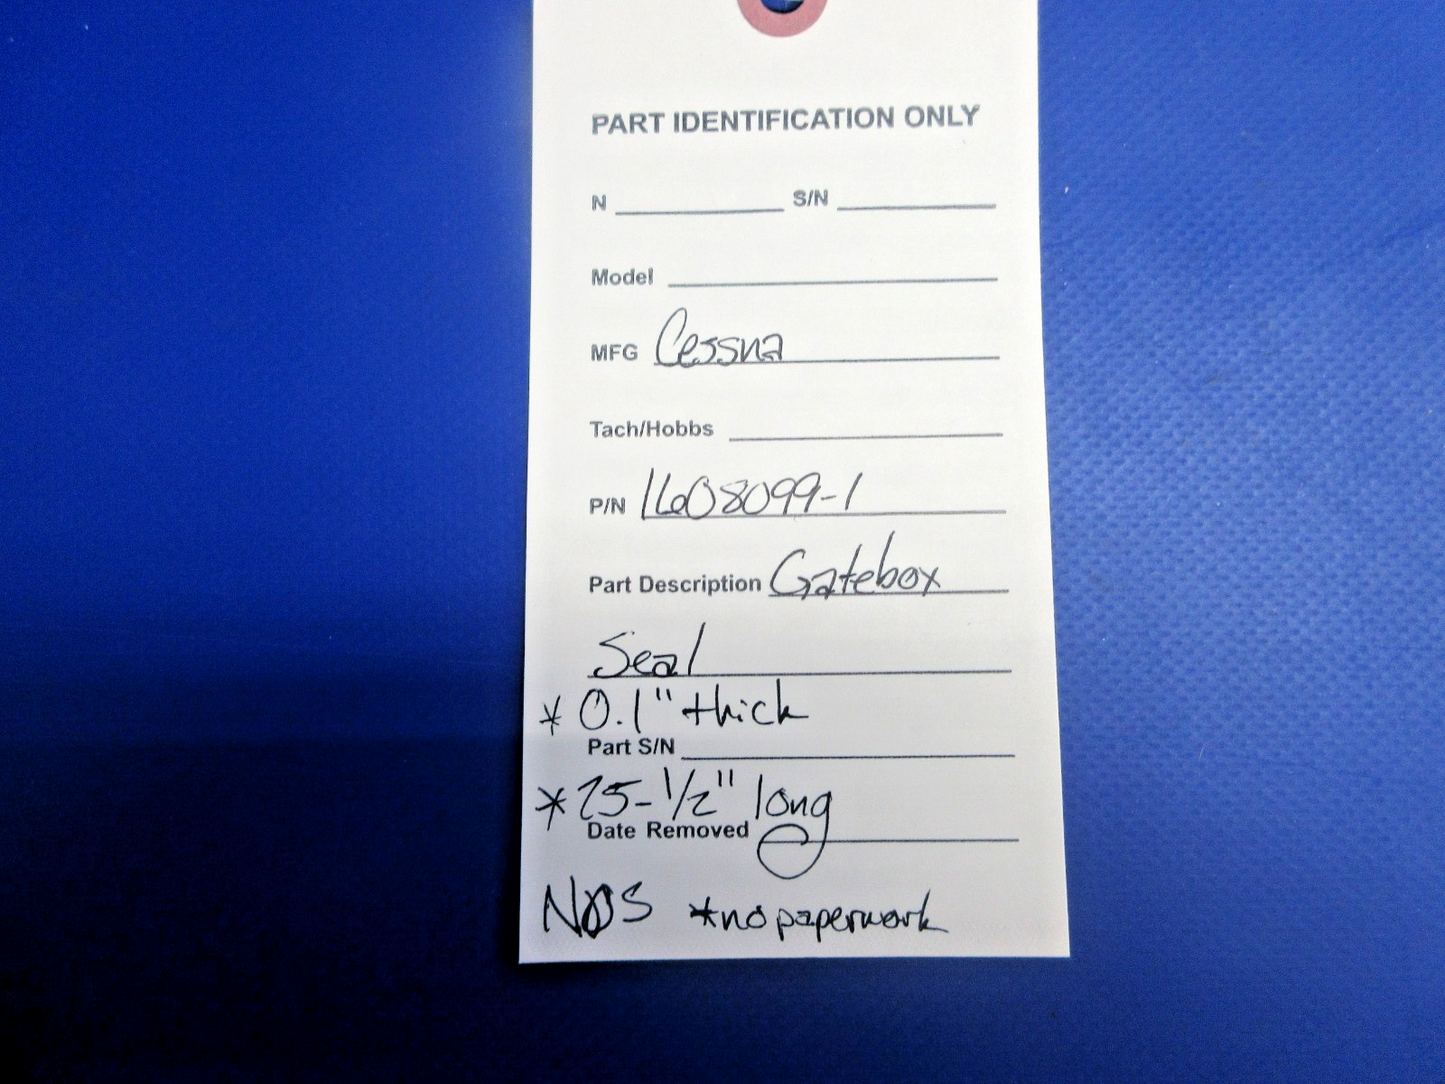 PART IDENTIFICATION ONLY
N S/N
Model
MFG Cessna
Tach/Hobbs
P/N 1608099-1
Part Description Gatebox
Seal
* 0.1" thick
Part S/N
* 25-1/2" long
Date Removed
NOS *no paperwork